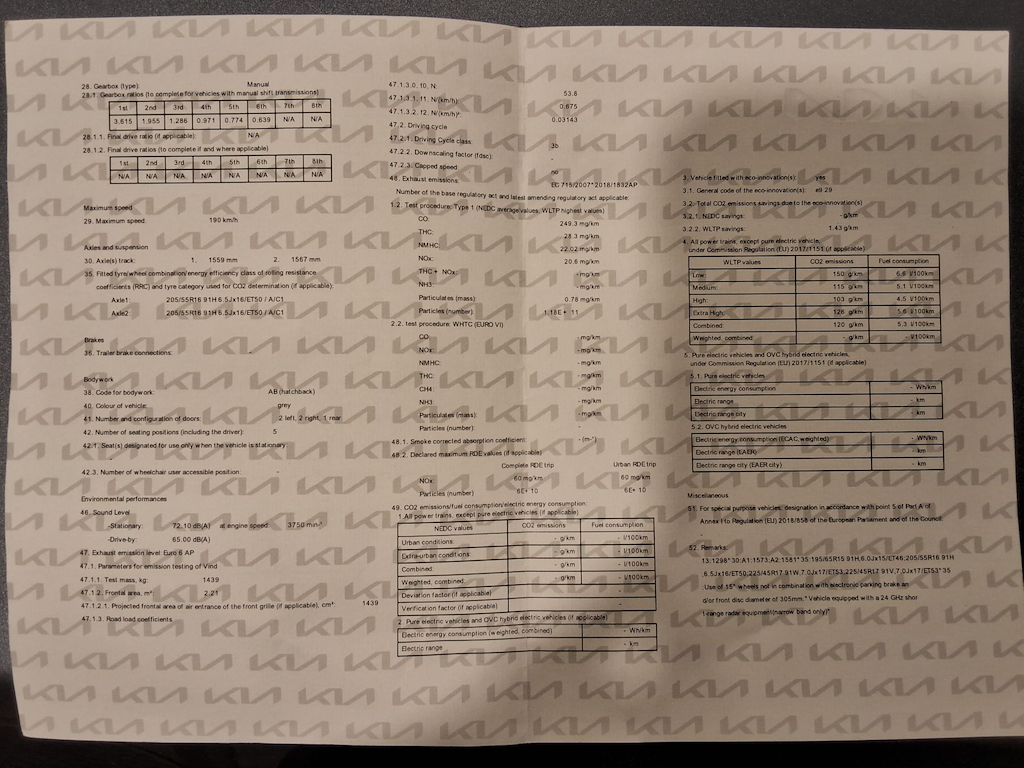 28. Gearbox (type): Manual
28.1. Gearbox ratios (to complete for vehicles with manual shift transmissions)
1st 2nd 3rd 4th 5th 6th 7th 8th
3.615 1.955 1.286 0.971 0.774 0.639 N/A N/A
28.1.1. Final drive ratio (if applicable): N/A
28.1.2. Final drive ratios (to complete if and where applicable)
1st 2nd 3rd 4th 5th 6th 7th 8th
N/A N/A N/A N/A N/A N/A N/A N/A
Maximum speed
29. Maximum speed: 190 km/h
Axles and suspension
30. Axle(s) track: 1. 1559 mm 2. 1567 mm
35. Fitted tyre/wheel combination/energy efficiency class of rolling resistance
coefficients (RRC) and tyre category used for CO2 determination (if applicable):
Axle1: 205/55R16 91H 6.5Jx16/ET50 / A/C1
Axle2: 205/55R16 91H 6.5Jx16/ET50 / A/C1
Brakes
36. Trailer brake connections:
Bodywork
38. Code for bodywork: AB (hatchback)
40. Colour of vehicle: grey
41. Number and configuration of doors: 2 left, 2 right, 1 rear
42. Number of seating positions (including the driver): 5
42.1. Seat(s) designated for use only when the vehicle is stationary:
42.3. Number of wheelchair user accessible position:
Environmental performances
46. Sound Level
-Stationary: 72.10 dB(A) at engine speed: 3750 min-¹
-Drive-by: 65.00 dB(A)
47. Exhaust emission level: Euro 6 AP
47.1. Parameters for emission testing of Vind
47.1.1. Test mass, kg: 1439
47.1.2. Frontal area, m²: 2.21
47.1.2.1. Projected frontal area of air entrance of the front grille (if applicable), cm²: 1439
47.1.3. Road load coefficients
47.1.3.0. f0, N: 53.8
47.1.3.1. f1, N/(km/h): 0.675
47.1.3.2. f2, N/(km/h)²: 0.03143
47.2. Driving cycle
47.2.1. Driving Cycle class: 3b
47.2.2. Downscaling factor (fdsc): -
47.2.3. Capped speed: no
48. Exhaust emissions: EC 715/2007*2018/1832AP
Number of the base regulatory act and latest amending regulatory act applicable:
1.2. Test procedure: Type 1 (NEDC average values, WLTP highest values)
CO: 249.3 mg/km
THC: 28.3 mg/km
NMHC: 22.02 mg/km
NOx: 20.6 mg/km
THC + NOx: - mg/km
NH3: - mg/km
Particulates (mass): 0.78 mg/km
Particles (number): 1.18E+ 11
2.2. test procedure: WHTC (EURO VI)
CO: - mg/km
NOx: - mg/km
NMHC: - mg/km
THC: - mg/km
CH4: - mg/km
NH3: - mg/km
Particulates (mass): - mg/km
Particles (number):
48.1. Smoke corrected absorption coefficient: - (m-¹)
48.2. Declared maximum RDE values (if applicable)
Complete RDE trip Urban RDE trip
NOx: 60 mg/km 60 mg/km
Particles (number): 6E+ 10 6E+ 10
49. CO2 emissions/fuel consumption/electric energy consumption
1. All power trains, except pure electric vehicles (if applicable)
NEDC values CO2 emissions Fuel consumption
Urban conditions: - g/km - l/100km
Extra-urban conditions: - g/km - l/100km
Combined: - g/km - l/100km
Weighted, combined - g/km - l/100km
Deviation factor (if applicable) -
Verification factor (if applicable) -
2. Pure electric vehicles and OVC hybrid electric vehicles (if applicable)
Electric energy consumption (weighted, combined) - Wh/km
Electric range - km
3. Vehicle fitted with eco-innovation(s): yes
3.1. General code of the eco-innovation(s): e9 29
3.2. Total CO2 emissions savings due to the eco-innovation(s)
3.2.1. NEDC savings: - g/km
3.2.2. WLTP savings: 1.43 g/km
4. All power trains, except pure electric vehicle,
under Commission Regulation (EU) 2017/1151 (if applicable)
WLTP values CO2 emissions Fuel consumption
Low: 150 g/km 6.6 l/100km
Medium: 115 g/km 5.1 l/100km
High: 103 g/km 4.5 l/100km
Extra High: 126 g/km 5.6 l/100km
Combined: 120 g/km 5.3 l/100km
Weighted, combined: - g/km - l/100km
5. Pure electric vehicles and OVC hybrid electric vehicles,
under Commission Regulation (EU) 2017/1151 (if applicable)
5.1. Pure electric vehicles
Electric energy consumption - Wh/km
Electric range - km
Electric range city - km
5.2. OVC hybrid electric vehicles
Electric energy consumption (ECAC, weighted) - Wh/km
Electric range (EAER) - km
Electric range city (EAER city) - km
Miscellaneous
51. For special purpose vehicles: designation in accordance with point 5 of Part A of
Annex I to Regulation (EU) 2018/858 of the European Parliament and of the Council:
52. Remarks:
13:1298* 30:A1:1573,A2:1581* 35:195/65R15 91H,6.0Jx15/ET46;205/55R16 91H
,6.5Jx16/ET50;225/45R17 91W,7.0Jx17/ET53;225/45R17 91V,7.0Jx17/ET53* 35
Use of 15" wheels not in combination with electronic parking brake an
d/or front disc diameter of 305mm.* Vehicle equipped with a 24 GHz shor
t-range radar equipment(narrow band only)*